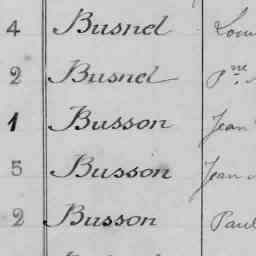 4 Busnel Lou
2 Busnel Pne
1 Busson Jean
5 Busson Jean
2 Busson Paul